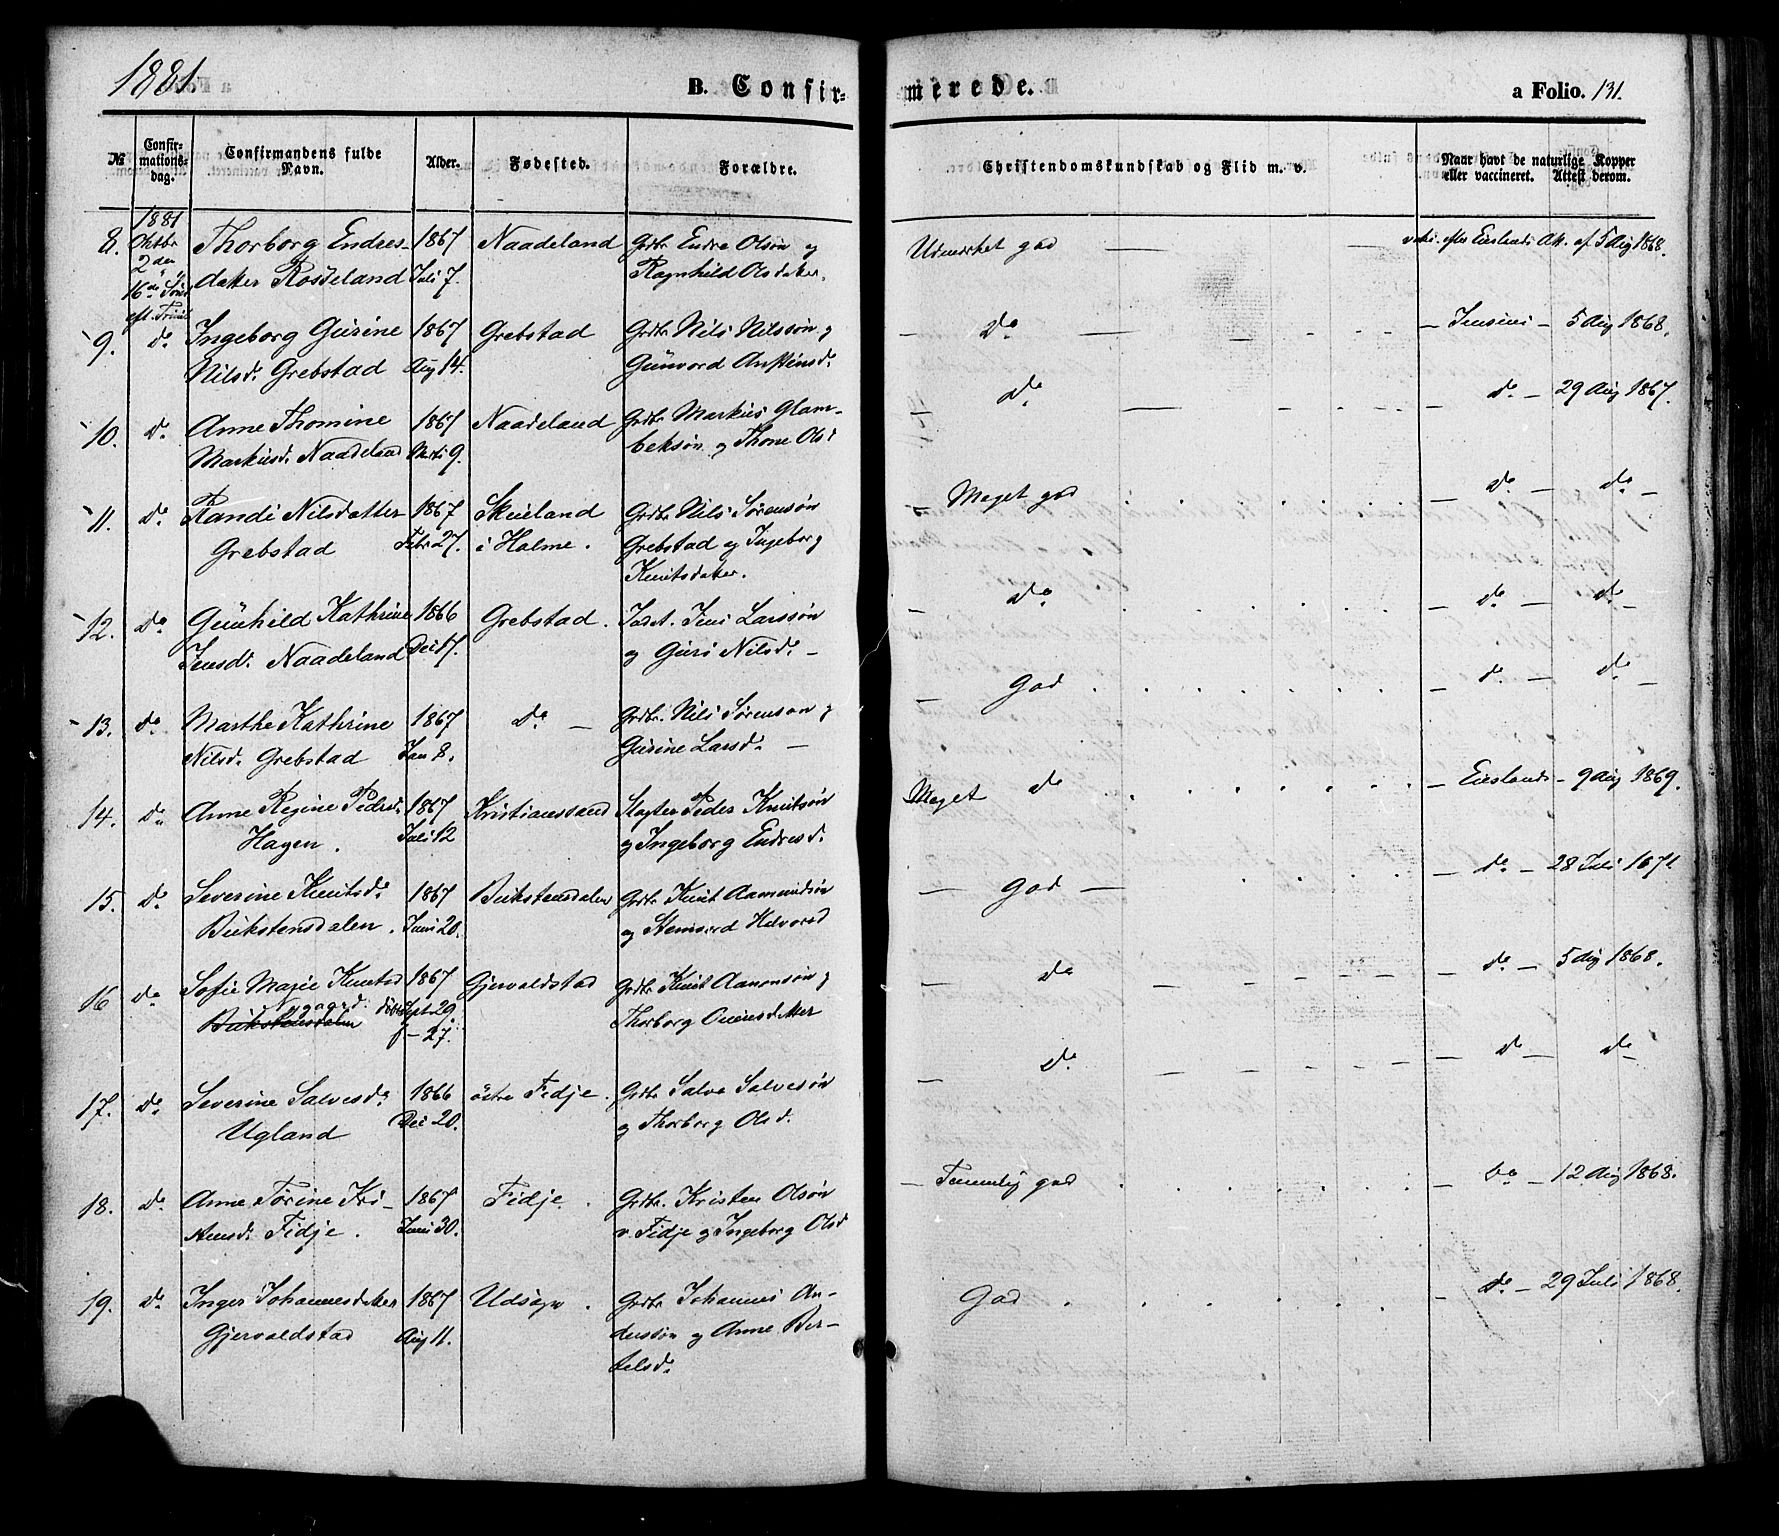 1881.
B. Confir-
merede.
a Folio. 131.
№
Confir-
mations-
dag.
Confirmandens fulde
Navn.
Alder.
Fødested.
Forældre.
Christendomskundskab og Flid m. v.
Naar havt de naturlige Kopper
eller vaccineret. Attest derom.
8. 1881 Oktbr 2den 16de Sønd eft. Trinit
Thorborg Endres- 1867 Naadeland Grdbr Endre Olsøn og
datter Rosseland Juli 7. Ragnhild Olsdatter.
Udmærket god — — — efter Eieslands Att. af 5 Aug 1868.
9. do Ingeborg Gurine 1867 Grebstad Grdbr Nils Nilssøn og
Nilsd. Grebstad Aug 14. Gunvord Anstensd.
— do — — — — Jensens — 5 Aug 1868.
10. do Anne Thomine 1867 Naadeland Grdbr Markus Glam-
Markusd. Naadeland Marts 9. beksøn og Thone Olsd
— do — — — — do — 29 Aug 1867.
11. do Randi Nilsdatter 1867 Skeieland Grdbr Nils Sørensøn
Grebstad Febr 27. i Halme. Grebstad og Ingeborg
Knutsdatter.
— Meget god . . . . . — do — do —
12. do Gunhild Kathrine 1866 Grebstad. Jens Larssøn
Jensd. Naadeland Dec 17. og Guri Nilsd. —
— do . . . . . — do — do —
13. do Marthe Kathrine 1867 do — Grdbr. Nils Sørenson og
Nilsd. Grebstad Jan 8. Gurine Larsd. —
— God . . . . . — do — do —
14. do Anne Regine Pedersd. 1867 Kristianssand Slagter Peder Knutsøn
Hagen. Juli 12 og Ingeborg Endresd.
Meget do . . . . . — Eieslands — 9 Aug 1869.
15. do Severine Knutsd. 1867 Bukstensdalen Grdbr Knut Aamundsøn
Bukstensdalen. Juni 20. og Halvorsd
— God — . . . . — do — 28 Juli 1871
16 do Sofie Marie Knutsd 1867 Gjervoldstad Grdbr Knut Aanonsøn og
Nygaard. Bukstensdalen døbt Sept 29. f — 27. Thorborg Ouensdatter
— do — — — — do — 5 Aug 1868.
17. do Severine Salvesd. 1866 östre Fidje. Grdbr Salve Salvesøn
Ugland Dec 20. og Thorborg Olsd.
— do — — — — do — do —
18. do Anne Torine Kri- 1867 Fidje. Grdbr. Kristen Olsøn
stensd. Fidje. Juni 30. v. Fidje og Ingeborg Olsd
— Temmelig god . . . . . — do — 12 Aug 1868.
19. do Inger Johannesdatter 1867 Udsøgn. Grdbr Johannes An-
Gjervoldstad Aug 11. derssøn og Anne Ber-
telsd.
God . . . . . — do — 29 Juli 1868.